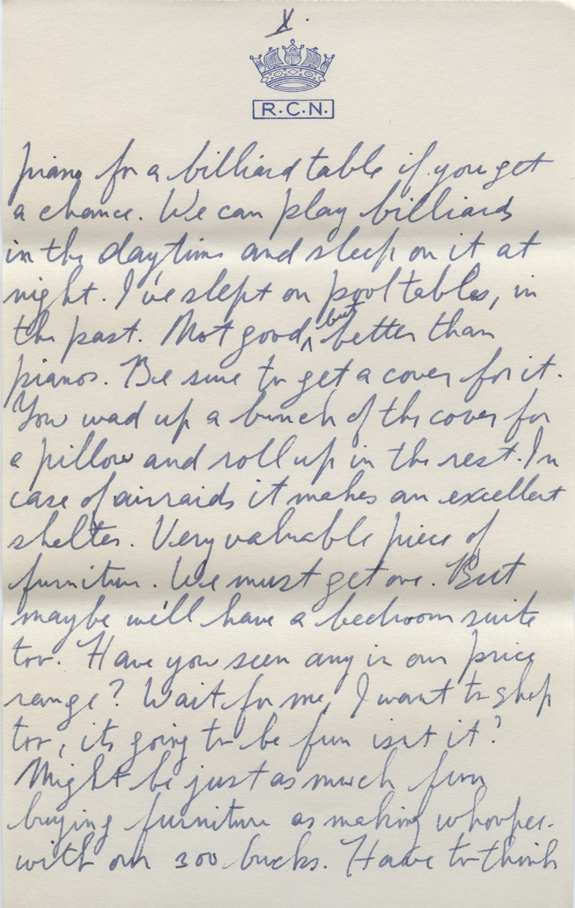 X.
R.C.N.
piano for a billiard table if you get
a chance. We can play billiards
in the daytime and sleep on it at
night. I've slept on pool tables, in
the past. Not good, but better than
pianos. Be sure to get a cover for it.
You wad up a bunch of the cover for
a pillow and roll up in the rest. In
case of airraids it makes an excellent
shelter. Very valuable piece of
furniture. We must get one. But
maybe we'll have a bedroom suite
too. Have you seen any in our price
range? Wait for me, I want to shop
too, its going to be fun isnt it?
Might be just as much fun
buying furniture as making whoopee
with our 300 bucks. Have to think